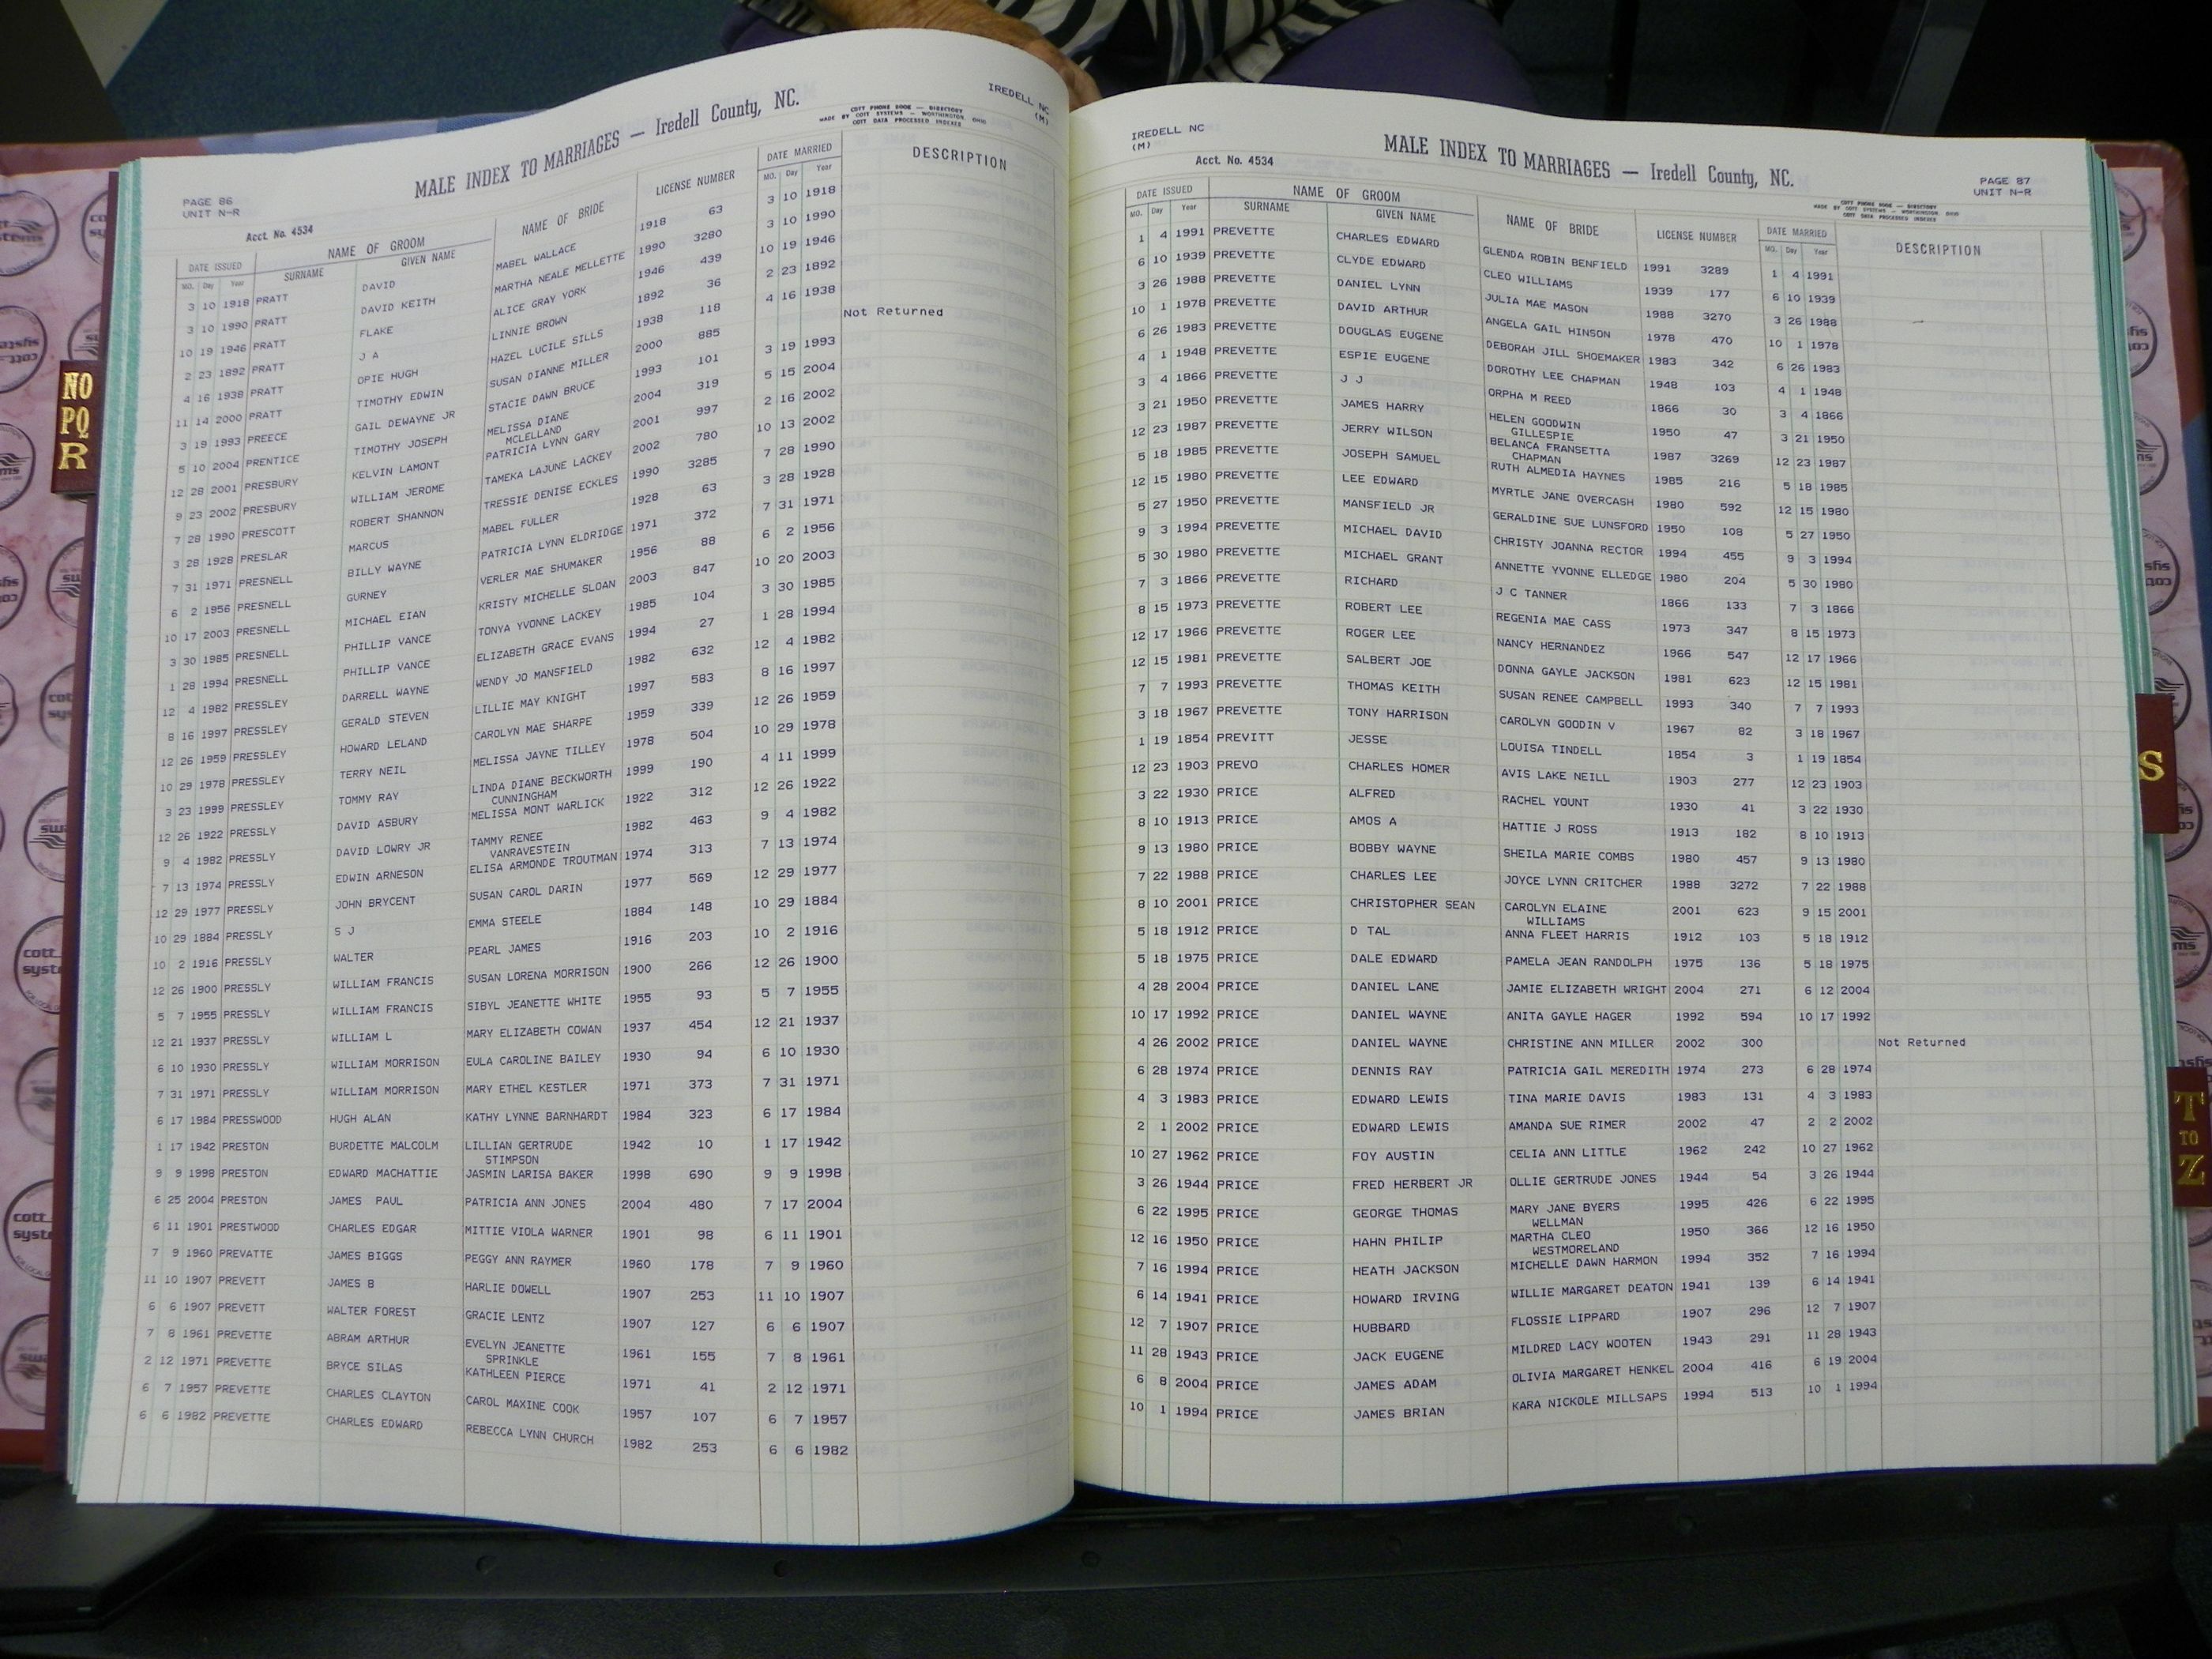 IREDELL NC
(M)
MALE INDEX TO MARRIAGES — Iredell County, NC.
COTT PHONE BOOK — DIRECTORY
MADE BY COTT SYSTEMS — WORTHINGTON, OHIO
COTT DATA PROCESSED INDEXES
PAGE 86
UNIT N-R
Acct. No. 4534
DATE ISSUED NAME OF GROOM NAME OF BRIDE LICENSE NUMBER DATE MARRIED DESCRIPTION
MO. Day Year SURNAME GIVEN NAME MO. Day Year
3 10 1918 PRATT DAVID MABEL WALLACE 1918 63 3 10 1918
3 10 1990 PRATT DAVID KEITH MARTHA NEALE MELLETTE 1990 3280 3 10 1990
10 19 1946 PRATT FLAKE ALICE GRAY YORK 1946 439 10 19 1946
2 23 1892 PRATT J A LINNIE BROWN 1892 36 2 23 1892
4 16 1938 PRATT OPIE HUGH HAZEL LUCILE SILLS 1938 118 4 16 1938
11 14 2000 PRATT TIMOTHY EDWIN SUSAN DIANNE MILLER 2000 885 Not Returned
3 19 1993 PREECE GAIL DEWAYNE JR STACIE DAWN BRUCE 1993 101 3 19 1993
5 10 2004 PRENTICE TIMOTHY JOSEPH MELISSA DIANE 2004 319 5 15 2004
MCLELLAND
12 28 2001 PRESBURY KELVIN LAMONT PATRICIA LYNN GARY 2001 997 2 16 2002
9 23 2002 PRESBURY WILLIAM JEROME TAMEKA LAJUNE LACKEY 2002 780 10 13 2002
7 28 1990 PRESCOTT ROBERT SHANNON TRESSIE DENISE ECKLES 1990 3285 7 28 1990
3 28 1928 PRESLAR MARCUS MABEL FULLER 1928 63 3 28 1928
7 31 1971 PRESNELL BILLY WAYNE PATRICIA LYNN ELDRIDGE 1971 372 7 31 1971
6 2 1956 PRESNELL GURNEY VERLER MAE SHUMAKER 1956 88 6 2 1956
10 17 2003 PRESNELL MICHAEL EIAN KRISTY MICHELLE SLOAN 2003 847 10 20 2003
3 30 1985 PRESNELL PHILLIP VANCE TONYA YVONNE LACKEY 1985 104 3 30 1985
1 28 1994 PRESNELL PHILLIP VANCE ELIZABETH GRACE EVANS 1994 27 1 28 1994
12 4 1982 PRESSLEY DARRELL WAYNE WENDY JO MANSFIELD 1982 632 12 4 1982
8 16 1997 PRESSLEY GERALD STEVEN LILLIE MAY KNIGHT 1997 583 8 16 1997
12 26 1959 PRESSLEY HOWARD LELAND CAROLYN MAE SHARPE 1959 339 12 26 1959
10 29 1978 PRESSLEY TERRY NEIL MELISSA JAYNE TILLEY 1978 504 10 29 1978
3 23 1999 PRESSLEY TOMMY RAY LINDA DIANE BECKWORTH 1999 190 4 11 1999
CUNNINGHAM
12 26 1922 PRESSLY DAVID ASBURY MELISSA MONT WARLICK 1922 312 12 26 1922
9 4 1982 PRESSLY DAVID LOWRY JR TAMMY RENEE 1982 463 9 4 1982
VANRAVESTEIN
7 13 1974 PRESSLY EDWIN ARNESON ELISA ARMONDE TROUTMAN 1974 313 7 13 1974
12 29 1977 PRESSLY JOHN BRYCENT SUSAN CAROL DARIN 1977 569 12 29 1977
10 29 1884 PRESSLY S J EMMA STEELE 1884 148 10 29 1884
10 2 1916 PRESSLY WALTER PEARL JAMES 1916 203 10 2 1916
12 26 1900 PRESSLY WILLIAM FRANCIS SUSAN LORENA MORRISON 1900 266 12 26 1900
5 7 1955 PRESSLY WILLIAM FRANCIS SIBYL JEANETTE WHITE 1955 93 5 7 1955
12 21 1937 PRESSLY WILLIAM L MARY ELIZABETH COWAN 1937 454 12 21 1937
6 10 1930 PRESSLY WILLIAM MORRISON EULA CAROLINE BAILEY 1930 94 6 10 1930
7 31 1971 PRESSLY WILLIAM MORRISON MARY ETHEL KESTLER 1971 373 7 31 1971
6 17 1984 PRESSWOOD HUGH ALAN KATHY LYNNE BARNHARDT 1984 323 6 17 1984
1 17 1942 PRESTON BURDETTE MALCOLM LILLIAN GERTRUDE 1942 10 1 17 1942
STIMPSON
9 9 1998 PRESTON EDWARD MACHATTIE JASMIN LARISA BAKER 1998 690 9 9 1998
6 25 2004 PRESTON JAMES PAUL PATRICIA ANN JONES 2004 480 7 17 2004
6 11 1901 PRESTWOOD CHARLES EDGAR MITTIE VIOLA WARNER 1901 98 6 11 1901
7 9 1960 PREVATTE JAMES BIGGS PEGGY ANN RAYMER 1960 178 7 9 1960
11 10 1907 PREVETT JAMES B HARLIE DOWELL 1907 253 11 10 1907
6 6 1907 PREVETT WALTER FOREST GRACIE LENTZ 1907 127 6 6 1907
7 8 1961 PREVETTE ABRAM ARTHUR EVELYN JEANETTE 1961 155 7 8 1961
SPRINKLE
2 12 1971 PREVETTE BRYCE SILAS KATHLEEN PIERCE 1971 41 2 12 1971
6 7 1957 PREVETTE CHARLES CLAYTON CAROL MAXINE COOK 1957 107 6 7 1957
6 6 1982 PREVETTE CHARLES EDWARD REBECCA LYNN CHURCH 1982 253 6 6 1982
IREDELL NC
(M)
MALE INDEX TO MARRIAGES — Iredell County, NC.
Acct. No. 4534
PAGE 87
UNIT N-R
COTT PHONE BOOK — DIRECTORY
MADE BY COTT SYSTEMS — WORTHINGTON, OHIO
COTT DATA PROCESSED INDEXES
DATE ISSUED NAME OF GROOM NAME OF BRIDE LICENSE NUMBER DATE MARRIED DESCRIPTION
MO. Day Year SURNAME GIVEN NAME MO. Day Year
1 4 1991 PREVETTE CHARLES EDWARD GLENDA ROBIN BENFIELD 1991 3289 1 4 1991
6 10 1939 PREVETTE CLYDE EDWARD CLEO WILLIAMS 1939 177 6 10 1939
3 26 1988 PREVETTE DANIEL LYNN JULIA MAE MASON 1988 3270 3 26 1988
10 1 1978 PREVETTE DAVID ARTHUR ANGELA GAIL HINSON 1978 470 10 1 1978
6 26 1983 PREVETTE DOUGLAS EUGENE DEBORAH JILL SHOEMAKER 1983 342 6 26 1983
4 1 1948 PREVETTE ESPIE EUGENE DOROTHY LEE CHAPMAN 1948 103 4 1 1948
3 4 1866 PREVETTE J J ORPHA M REED 1866 30 3 4 1866
3 21 1950 PREVETTE JAMES HARRY HELEN GOODWIN 1950 47 3 21 1950
GILLESPIE
12 23 1987 PREVETTE JERRY WILSON BELANCA FRANSETTA 1987 3269 12 23 1987
CHAPMAN
5 18 1985 PREVETTE JOSEPH SAMUEL RUTH ALMEDIA HAYNES 1985 216 5 18 1985
12 15 1980 PREVETTE LEE EDWARD MYRTLE JANE OVERCASH 1980 592 12 15 1980
5 27 1950 PREVETTE MANSFIELD JR GERALDINE SUE LUNSFORD 1950 108 5 27 1950
9 3 1994 PREVETTE MICHAEL DAVID CHRISTY JOANNA RECTOR 1994 455 9 3 1994
5 30 1980 PREVETTE MICHAEL GRANT ANNETTE YVONNE ELLEDGE 1980 204 5 30 1980
7 3 1866 PREVETTE RICHARD J C TANNER 1866 133 7 3 1866
8 15 1973 PREVETTE ROBERT LEE REGENIA MAE CASS 1973 347 8 15 1973
12 17 1966 PREVETTE ROGER LEE NANCY HERNANDEZ 1966 547 12 17 1966
12 15 1981 PREVETTE SALBERT JOE DONNA GAYLE JACKSON 1981 623 12 15 1981
7 7 1993 PREVETTE THOMAS KEITH SUSAN RENEE CAMPBELL 1993 340 7 7 1993
3 18 1967 PREVETTE TONY HARRISON CAROLYN GOODIN V 1967 82 3 18 1967
1 19 1854 PREVITT JESSE LOUISA TINDELL 1854 3 1 19 1854
12 23 1903 PREVO CHARLES HOMER AVIS LAKE NEILL 1903 277 12 23 1903
3 22 1930 PRICE ALFRED RACHEL YOUNT 1930 41 3 22 1930
8 10 1913 PRICE AMOS A HATTIE J ROSS 1913 182 8 10 1913
9 13 1980 PRICE BOBBY WAYNE SHEILA MARIE COMBS 1980 457 9 13 1980
7 22 1988 PRICE CHARLES LEE JOYCE LYNN CRITCHER 1988 3272 7 22 1988
8 10 2001 PRICE CHRISTOPHER SEAN CAROLYN ELAINE 2001 623 9 15 2001
WILLIAMS
5 18 1912 PRICE D TAL ANNA FLEET HARRIS 1912 103 5 18 1912
5 18 1975 PRICE DALE EDWARD PAMELA JEAN RANDOLPH 1975 136 5 18 1975
4 28 2004 PRICE DANIEL LANE JAMIE ELIZABETH WRIGHT 2004 271 6 12 2004
10 17 1992 PRICE DANIEL WAYNE ANITA GAYLE HAGER 1992 594 10 17 1992
4 26 2002 PRICE DANIEL WAYNE CHRISTINE ANN MILLER 2002 300 Not Returned
6 28 1974 PRICE DENNIS RAY PATRICIA GAIL MEREDITH 1974 273 6 28 1974
4 3 1983 PRICE EDWARD LEWIS TINA MARIE DAVIS 1983 131 4 3 1983
2 1 2002 PRICE EDWARD LEWIS AMANDA SUE RIMER 2002 47 2 2 2002
10 27 1962 PRICE FOY AUSTIN CELIA ANN LITTLE 1962 242 10 27 1962
3 26 1944 PRICE FRED HERBERT JR OLLIE GERTRUDE JONES 1944 54 3 26 1944
6 22 1995 PRICE GEORGE THOMAS MARY JANE BYERS 1995 426 6 22 1995
WELLMAN
12 16 1950 PRICE HAHN PHILIP MARTHA CLEO 1950 366 12 16 1950
WESTMORELAND
7 16 1994 PRICE HEATH JACKSON MICHELLE DAWN HARMON 1994 352 7 16 1994
6 14 1941 PRICE HOWARD IRVING WILLIE MARGARET DEATON 1941 139 6 14 1941
12 7 1907 PRICE HUBBARD FLOSSIE LIPPARD 1907 296 12 7 1907
11 28 1943 PRICE JACK EUGENE MILDRED LACY WOOTEN 1943 291 11 28 1943
6 8 2004 PRICE JAMES ADAM OLIVIA MARGARET HENKEL 2004 416 6 19 2004
10 1 1994 PRICE JAMES BRIAN KARA NICKOLE MILLSAPS 1994 513 10 1 1994
NO
PQ
R
S
T
TO
Z
cott
syste